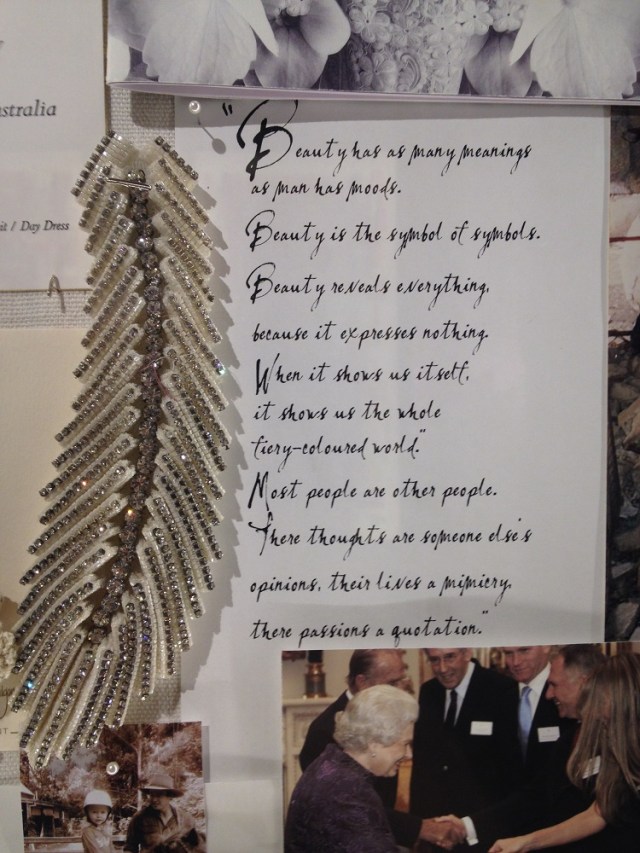 stralia
it / Day Dress
"Beauty has as many meanings
as man has moods.
Beauty is the symbol of symbols.
Beauty reveals everything,
because it expresses nothing.
When it shows us itself,
it shows us the whole
fiery-coloured world."
Most people are other people.
There thoughts are someone else's
opinions, their lives a mimicry,
there passions a quotation."